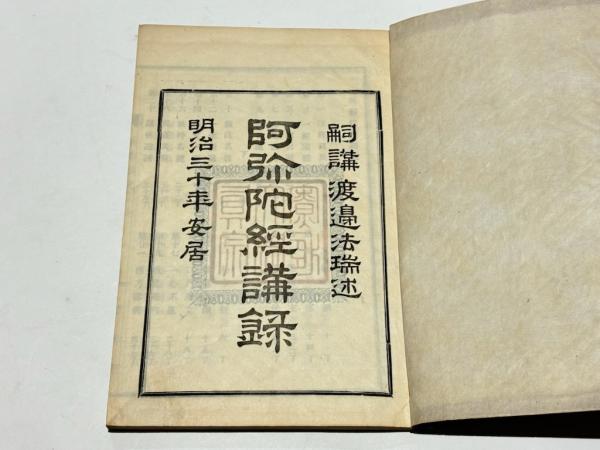 嗣講 渡邉法瑞述
阿弥陀經講録
明治三十年安居